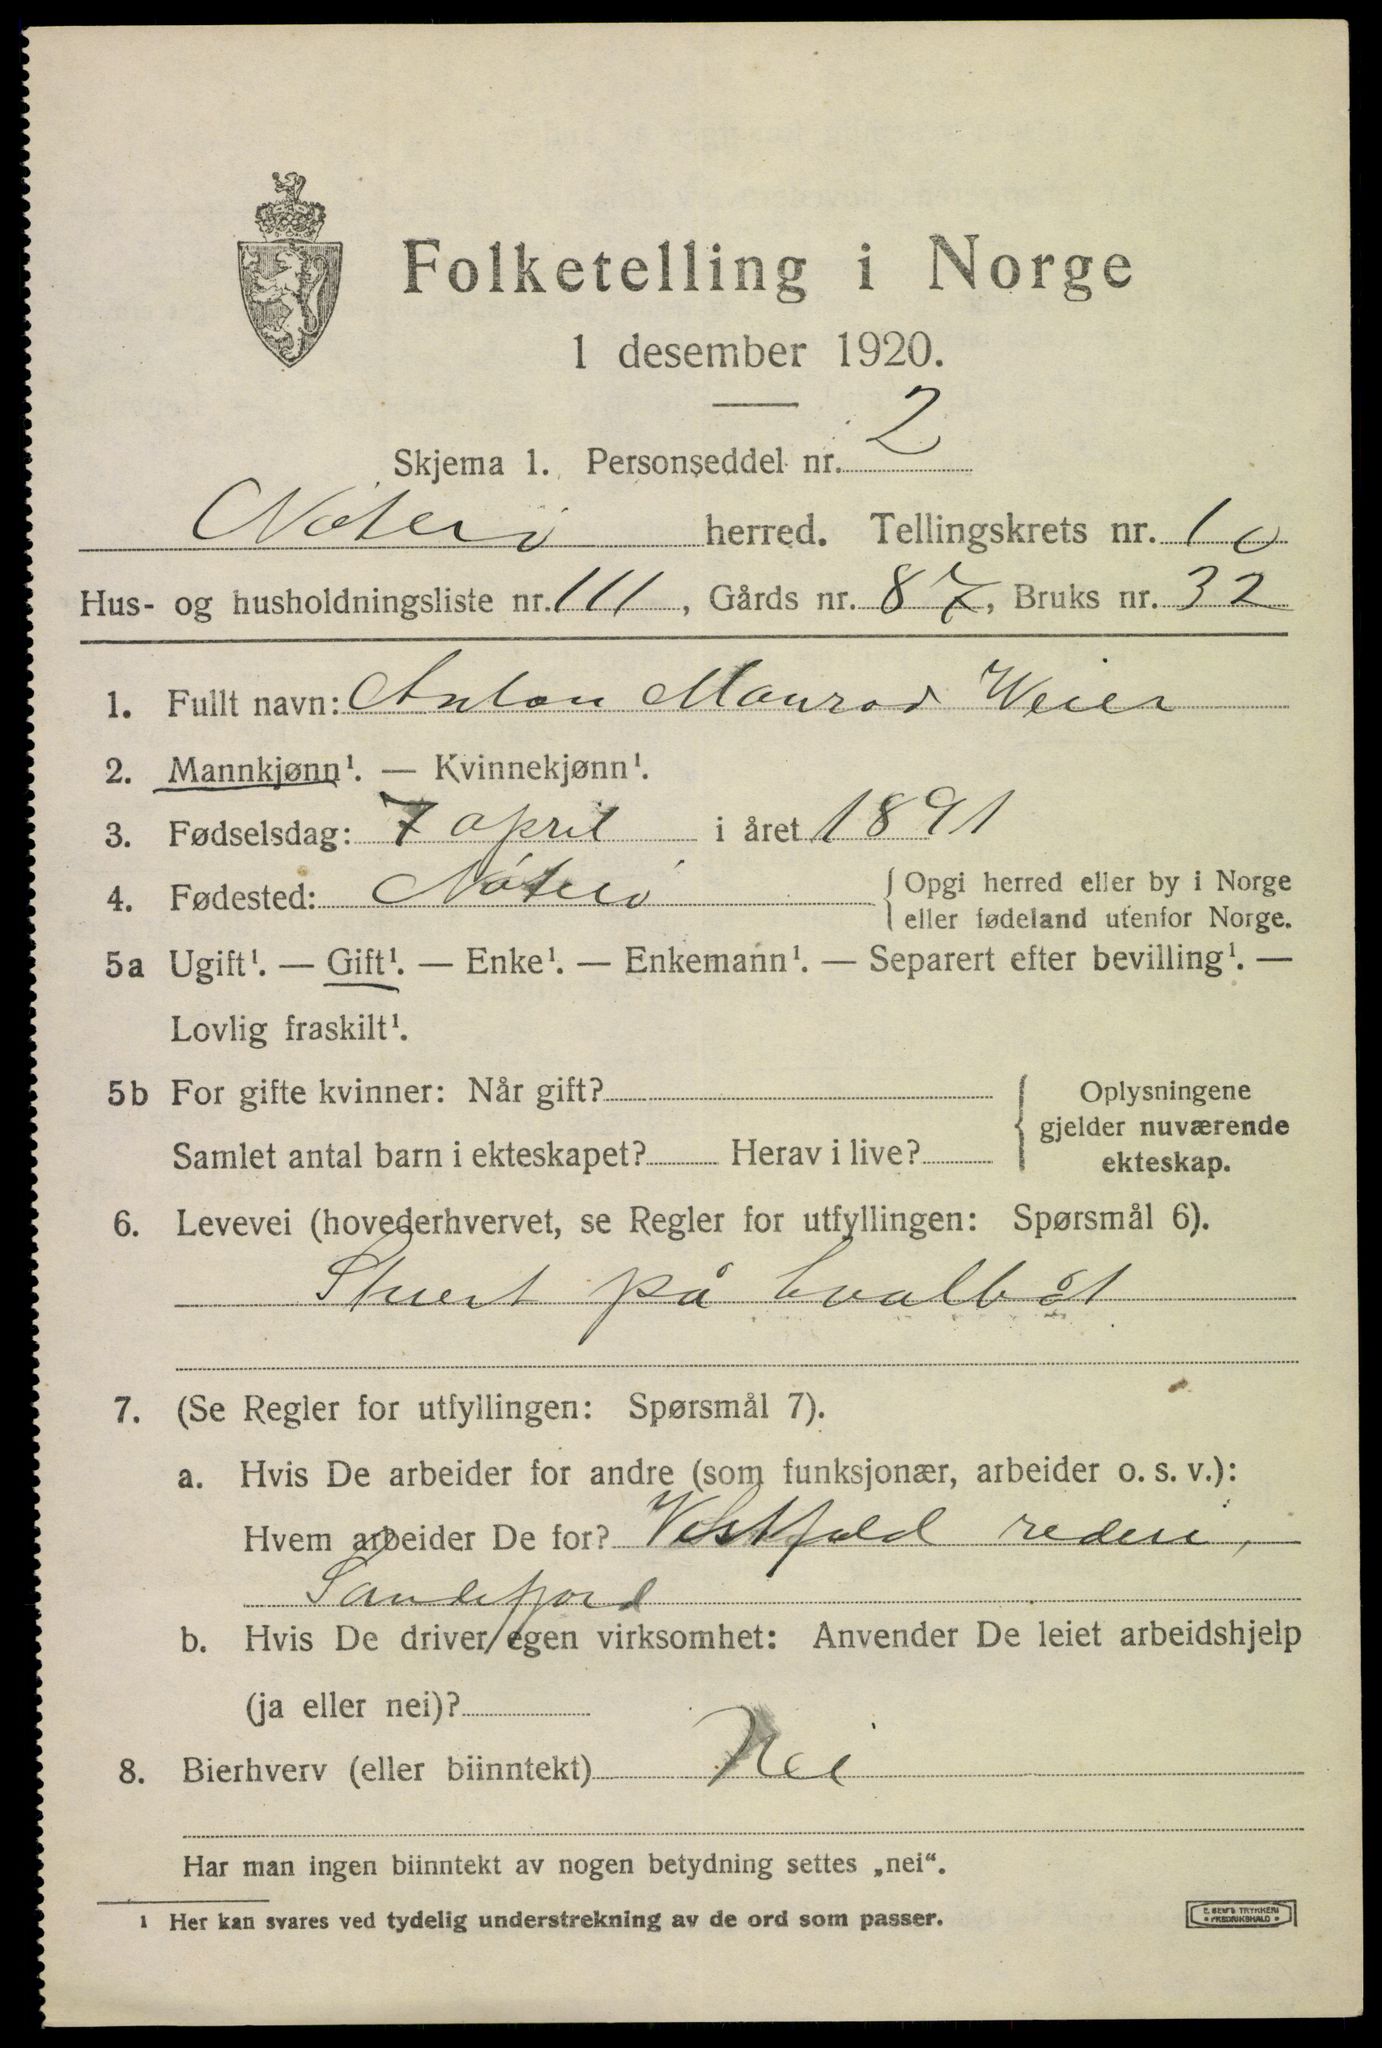 Folketelling i Norge
1 desember 1920.
Skjema 1. Personseddel nr. 2
Nøterø herred. Tellingskrets nr. 10
Hus- og husholdningsliste nr. 111, Gårds nr. 87, Bruks nr. 32
1. Fullt navn: Anton Monrad Weier
2. Mannkjønn¹. — Kvinnekjønn¹.
3. Fødselsdag: 7 april i året 1891
4. Fødested: Nøterø { Opgi herred eller by i Norge
eller fødeland utenfor Norge.
5a Ugift¹. — Gift¹. — Enke¹. — Enkemann¹. — Separert efter bevilling¹. —
Lovlig fraskilt¹.
5b For gifte kvinner: Når gift? { Oplysningene
gjelder nuværende
Samlet antal barn i ekteskapet? Herav i live? ekteskap.
6. Levevei (hovederhvervet, se Regler for utfyllingen: Spørsmål 6).
Stuert på hvalbåt
7. (Se Regler for utfyllingen: Spørsmål 7).
a. Hvis De arbeider for andre (som funksjonær, arbeider o. s. v.):
Hvem arbeider De for? Vestfold rederi,
Sandefjord
b. Hvis De driver egen virksomhet: Anvender De leiet arbeidshjelp
(ja eller nei)?
8. Bierhverv (eller biinntekt) Nei
Har man ingen biinntekt av nogen betydning settes „nei“.
¹ Her kan svares ved tydelig understrekning av de ord som passer.
E. SEM'S TRYKKERI
• FREDRIKSHALD •